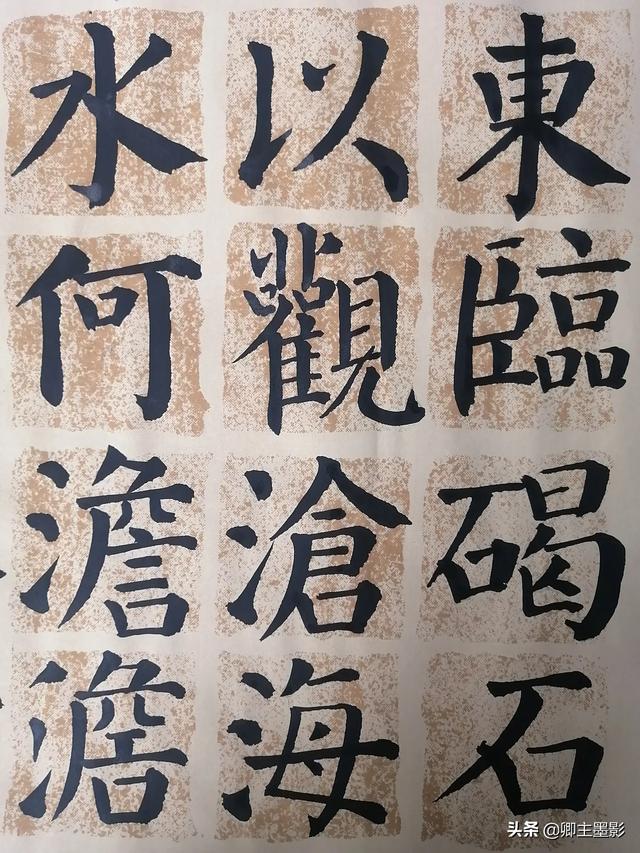 東臨碣石
以觀滄海
水何澹澹
头条 @卿主墨影